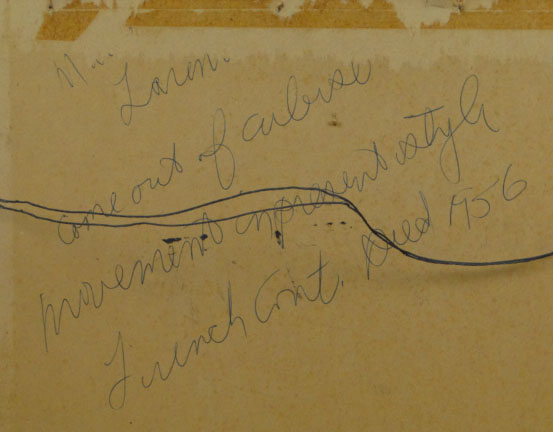 M...
Laren.
come out of cubise
movement in present style
French Cont. Died 1956